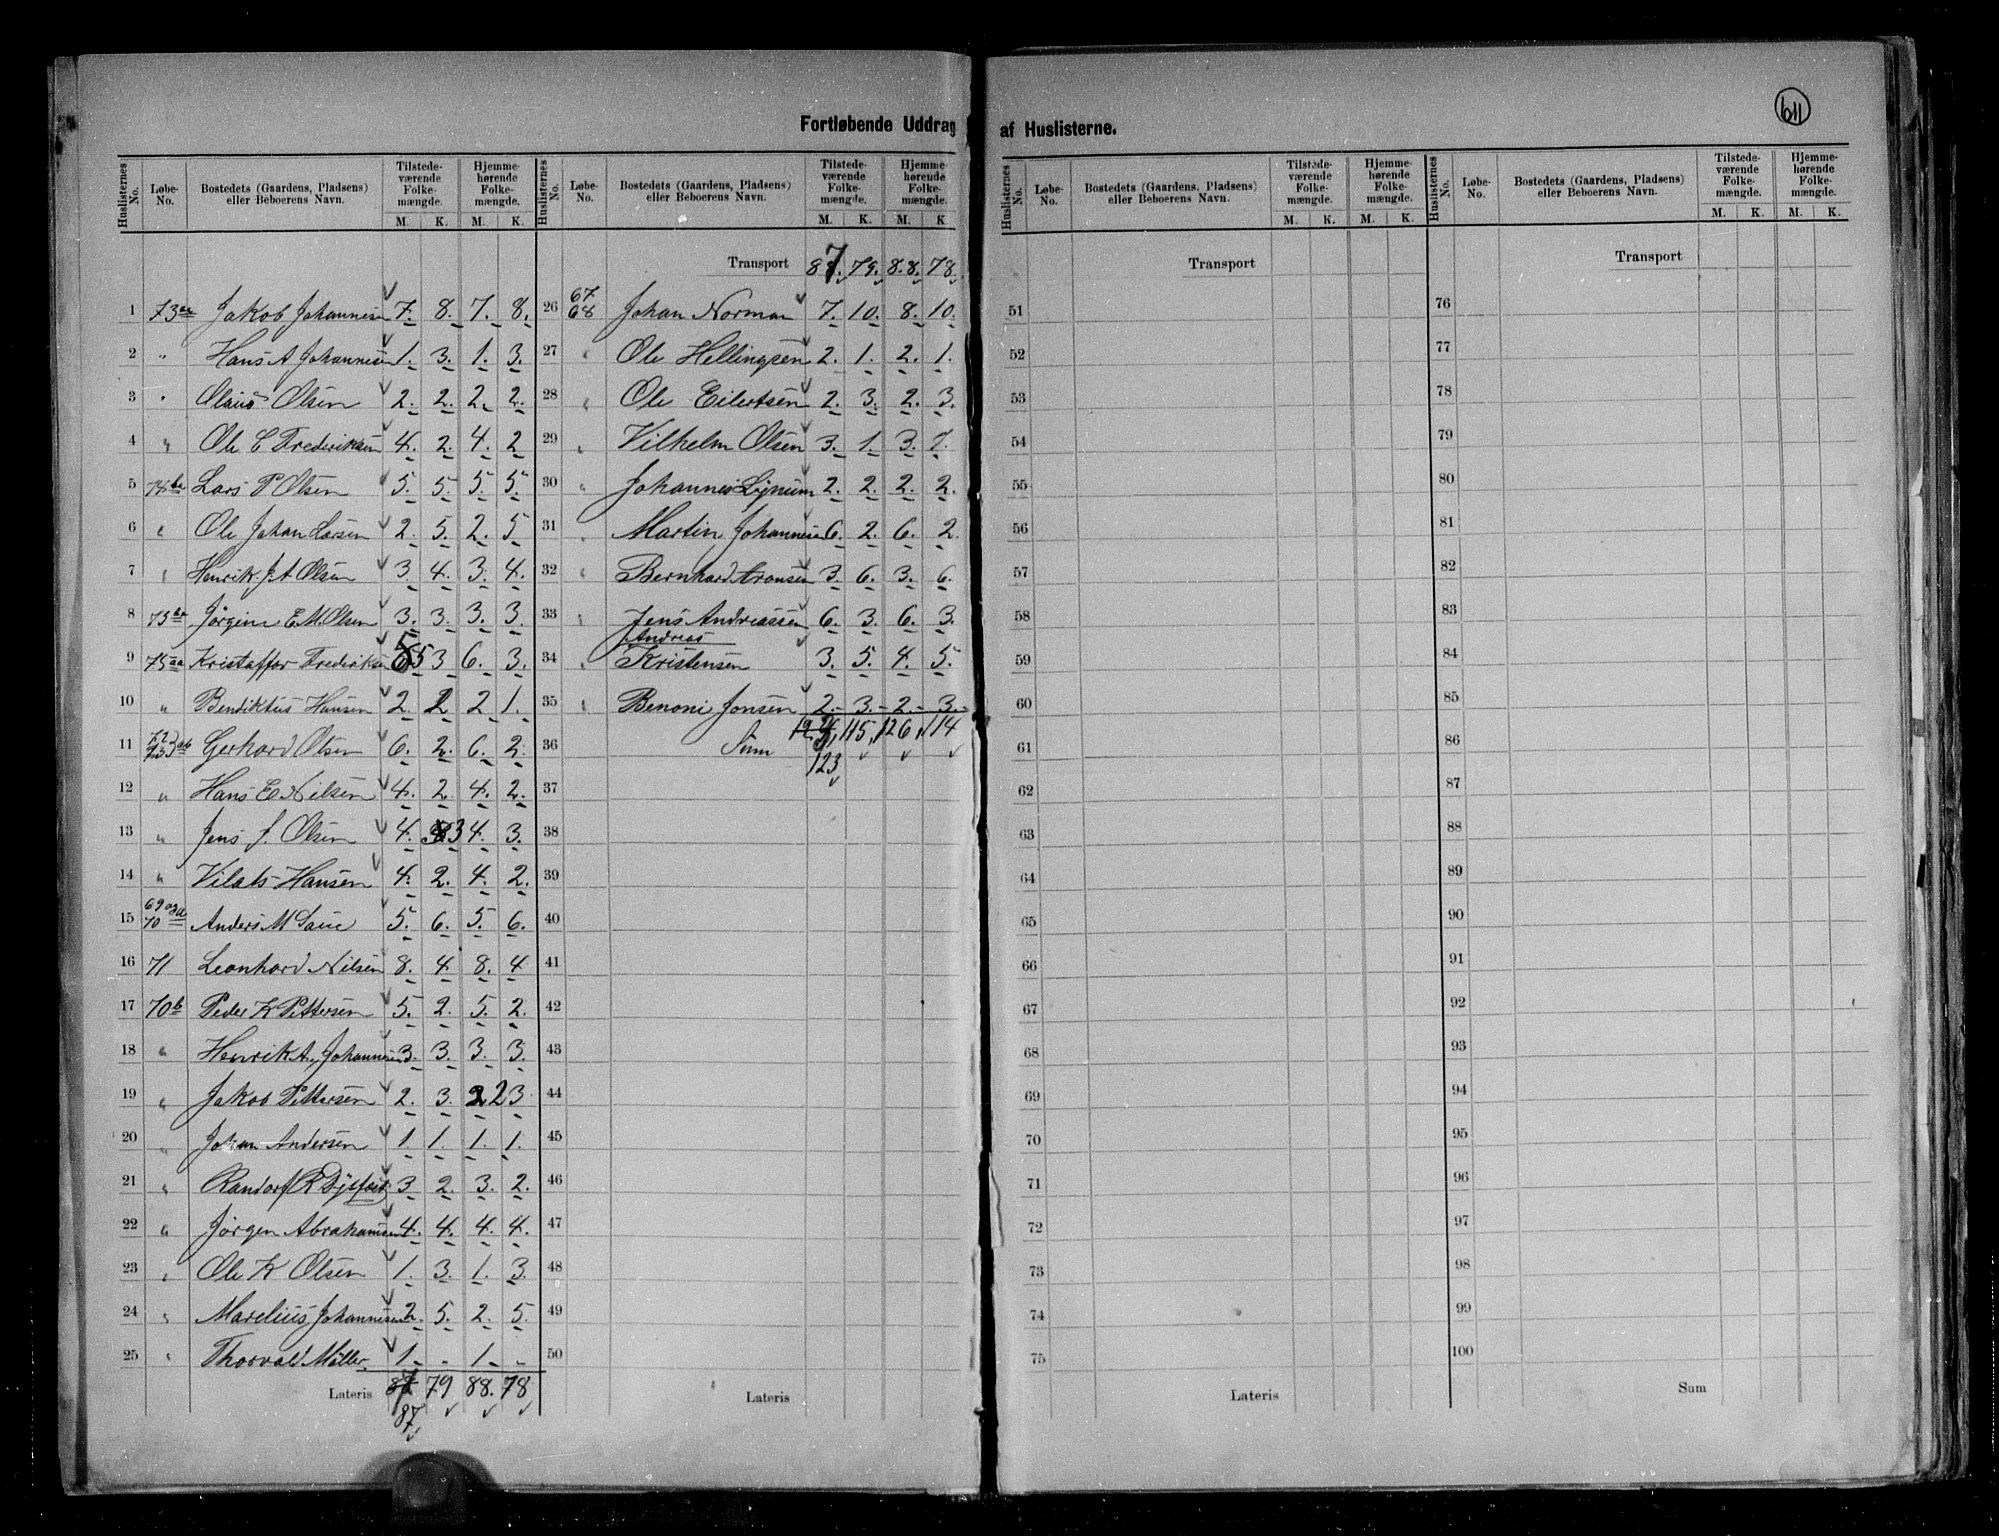 611
Fortløbende Uddrag af Huslisterne.
Huslisternes No. Løbe-No. Bostedets (Gaardens, Pladsens) eller Beboerens Navn. Tilstedeværende Folkemængde. M. K. Hjemmehørende Folkemængde. M. K.
1 73 Jakob Johannesen 7. 8. 7. 8.
2 " Hans A Johannesen 1. 3. 1. 3.
3 " Olaus Olsen 2. 2. 2. 2.
4 " Ole C Frederiksen 4. 2. 4. 2
5 74 ba Lars P Olsen 5. 5. 5. 5.
6 " Ole Johan Larsen 2. 5. 2. 5
7 " Henrik J. A Olsen 3. 4. 3. 4.
8 75 ba Jørgine E. M. Olsen 3. 3. 3. 3.
9 75 aa Kristaffor Frederiksen 5 3 6. 3.
10 " Bendiktus Hansen 2. 2 2 1.
11 72 73 Gerhard Olsen 6. 2. 6. 2.
12 " Hans E Nilsen 4. 2. 4. 2.
13 " Jens J. Olsen 4. 3 4. 3.
14 " Vilats Hansen 4. 2. 4. 2.
15 69 og 70 a Anders M 5. 6. 5. 6.
16 71 Leonhard Nilsen 8. 4. 8. 4
17 70 b Peder K Pettersen 5. 2. 5. 2.
18 " Henrik A. Johannesen 3. 3. 3. 3.
19 " Jakob Pettersen 2. 3. 2 3
20 " Johan Andersen 1. 1. 1. 1.
21 " Randorf R 3 2. 3. 2.
22 " Jørgen Abrahamsen 4. 4. 4. 4.
23 " Ole K Olsen 1. 3. 1. 3.
24 " Marelius Johannesen 2. 5. 2. 5.
25 " Thorvald Møller 1. - 1. -
Lateris 87 79 88. 78
87
Huslisternes No. Løbe-No. Bostedets (Gaardens, Pladsens) eller Beboerens Navn. Tilstedeværende Folkemængde. M. K. Hjemmehørende Folkemængde. M. K
Transport 87. 79. 88. 78.
26 67 68 Johan Norman 7. 10. 8. 10.
27 " Ole Hellingsen 2. 1. 2. 1.
28 " Ole Eilertsen 2. 3. 2. 3.
29 " Vilhelm Olsen 3. 1. 3. 1.
30 " Johannes 2. 2. 2. 2.
31 " Martin Johannesen 6. 2. 6. 2
32 " Bernhard Aronsen 3. 6. 3. 6.
33 " Jens Andreassen 6. 3. 6. 3.
34 " Andreas Kristensen 3. 5. 4. 5.
35 " Benoni Jonsen 2. 3. 2. 3.
36 Sum 115, 126, 114
123
37
38
39
40
41
42
43
44
45
46
47
48
49
50
Lateris
Huslisternes No. Løbe-No. Bostedets (Gaardens, Pladsens) eller Beboerens Navn. Tilstedeværende Folkemængde. M. K. Hjemmehørende Folkemængde. M. K.
Transport
51
52
53
54
55
56
57
58
59
60
61
62
63
64
65
66
67
68
69
70
71
72
73
74
75
Lateris
Huslisternes No. Løbe-No. Bostedets (Gaardens, Pladsens) eller Beboerens Navn. Tilstedeværende Folkemængde. M. K. Hjemmehørende Folkemængde. M. K.
Transport
76
77
78
79
80
81
82
83
84
85
86
87
88
89
90
91
92
93
94
95
96
97
98
99
100
Sum